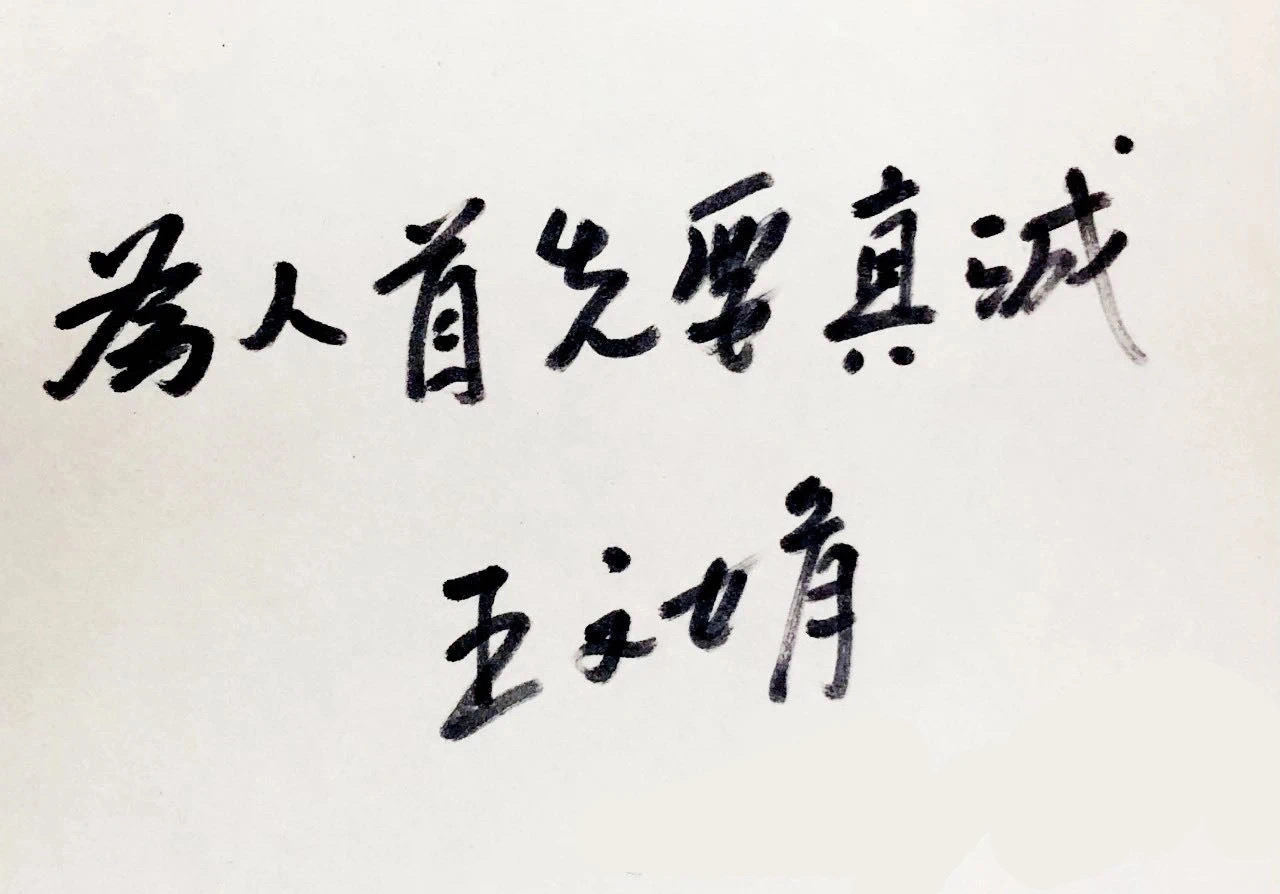 為人首先要真诚
王文娟